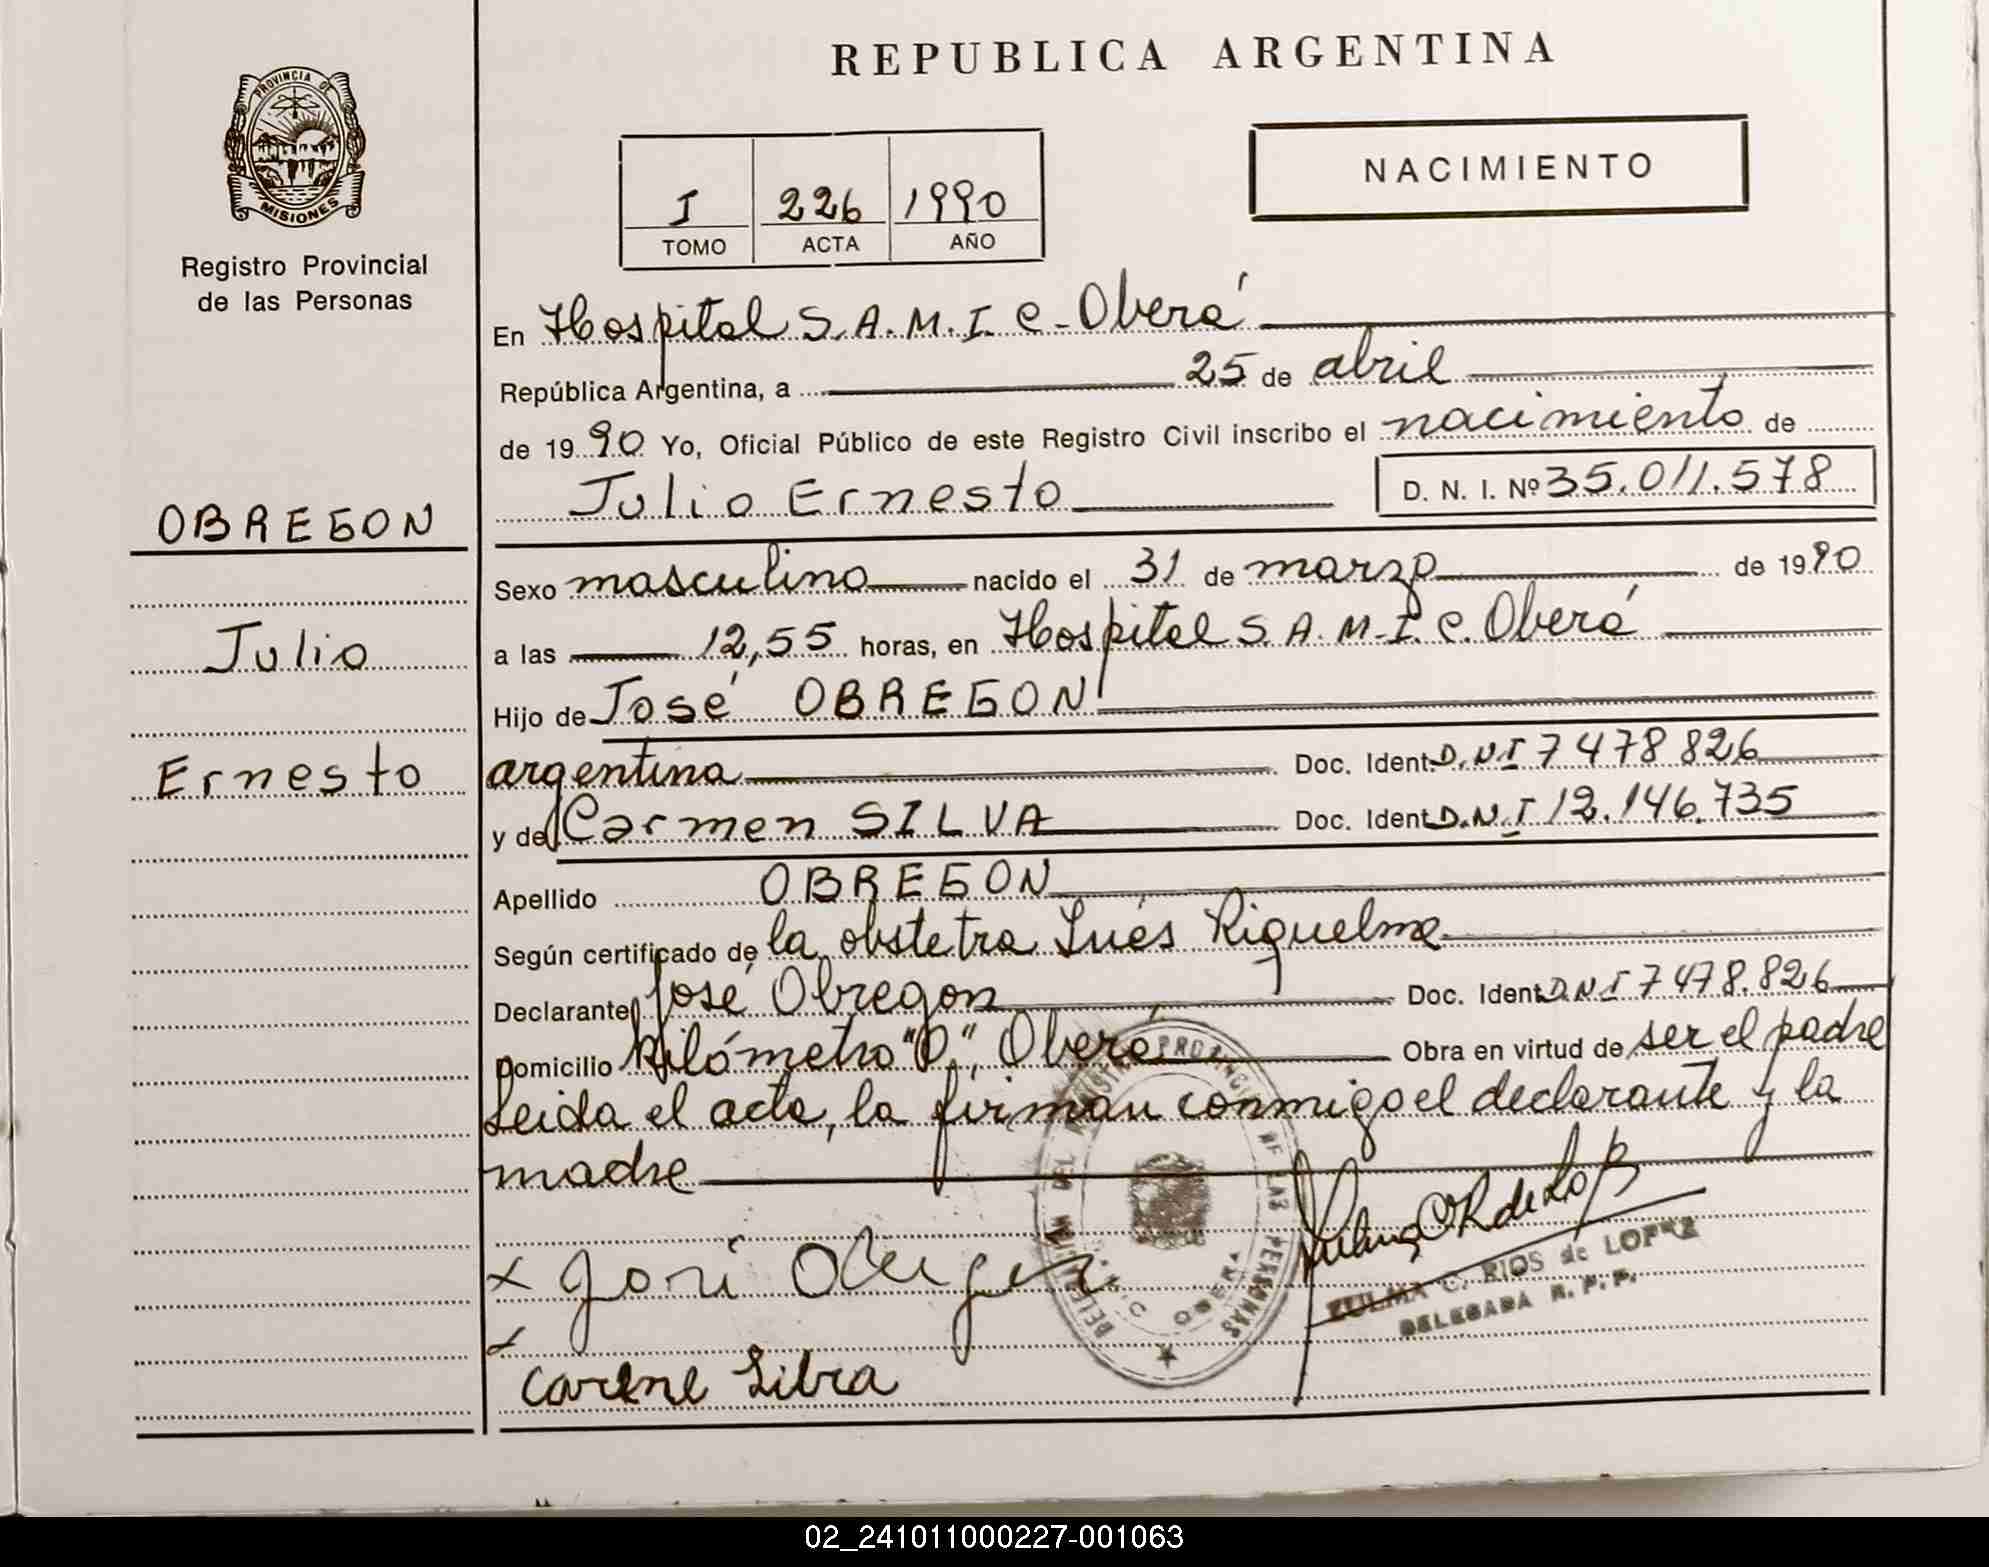 REPUBLICA ARGENTINA
PROVINCIA DE
MISIONES
Registro Provincial
de las Personas
I 226 1990
TOMO ACTA AÑO
NACIMIENTO
En Hospital S.A.M.I.C - Oberá
República Argentina, a 25 de abril
de 1990 Yo, Oficial Público de este Registro Civil inscribo el nacimiento de
Julio Ernesto D. N. I. Nº 35.011.578
OBREGON
Julio
Ernesto
Sexo masculino nacido el 31 de marzo de 1990
a las 12,55 horas, en Hospital S.A.M.I.C. Oberá
Hijo de José OBREGON
argentina Doc. Ident. D.N.I 7478826
y de Carmen SILVA Doc. Ident. D.N.I 12.146.735
Apellido OBREGON
Según certificado de la obstetra Inés Riquelme
Declarante José Obregon Doc. Ident. D.N.I 7478.826
Domicilio Kilómetro "0", Oberá Obra en virtud de ser el padre
Leida el acta, la firman conmigo el declarante y la
madre
DELEGACION DEL REGISTRO PROVINCIAL DE LAS PERSONAS
OBERA
ZULMA C. RIOS de LOPEZ
DELEGADA R. P. P.
x José Obregon
x
Carene Silva
02_241011000227-001063